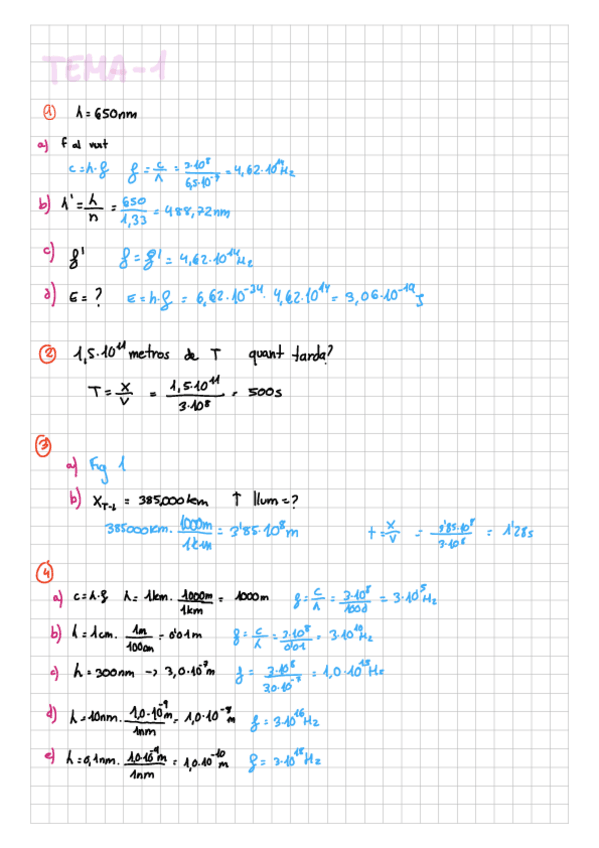 TEMA-1
① λ = 650nm
a) f al vuit
c = λ·f f = c/λ = 3·10⁸/6,5·10⁻⁷ = 4,62·10¹⁴Hz
b) λ' = λ/n = 650/1,33 = 488,72nm
c) f' f = f' = 4,62·10¹⁴Hz
d) E = ? E = h·f = 6,62·10⁻³⁴· 4,62·10¹⁴ = 3,06·10⁻¹⁹J
② 1,5·10¹¹ metros de T quant tarda?
T = x/v = 1,5·10¹¹/3·10⁸ = 500s
③
a) Fig 1
b) X_T-L = 385,000km ↑ llum = ?
385000km · 1000m/1km = 3'85·10⁸m t = x/v = 3'85·10⁸/3·10⁸ = 1'28s
④
a) c = λ·f λ = 1km · 1000m/1km = 1000m f = c/λ = 3·10⁸/1000 = 3·10⁵Hz
b) λ = 1cm · 1m/100cm = 0'01m f = c/λ = 3·10⁸/0'01 = 3·10¹⁰Hz
c) λ = 300nm -> 3,0·10⁻⁷m f = 3·10⁸/3,0·10⁻⁷ = 1,0·10¹⁵Hz
d) λ = 10nm · 1,0·10⁻⁹m/1nm = 1,0·10⁻⁸m f = 3·10¹⁶Hz
e) λ = 0,1nm · 1,0·10⁻⁹m/1nm = 1,0·10⁻¹⁰m f = 3·10¹⁸Hz